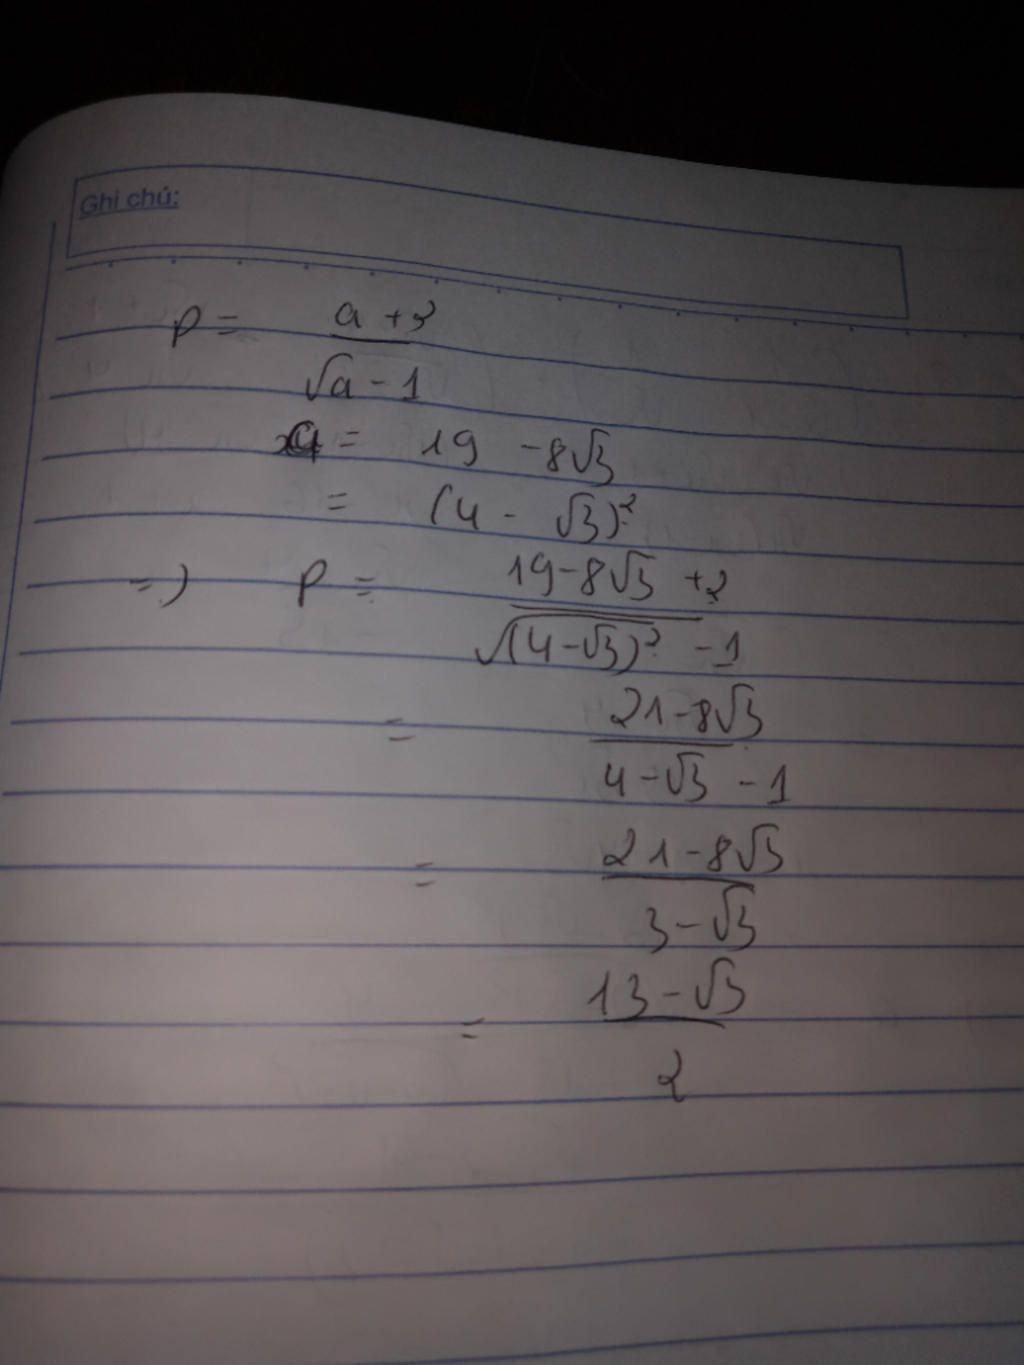 Ghi chú:
P = \frac{a + 2}{\sqrt{a} - 1}
a = 19 - 8\sqrt{3}
= (4 - \sqrt{3})^2
=) P = \frac{19 - 8\sqrt{3} + 2}{\sqrt{(4 - \sqrt{3})^2} - 1}
= \frac{21 - 8\sqrt{3}}{4 - \sqrt{3} - 1}
= \frac{21 - 8\sqrt{3}}{3 - \sqrt{3}}
= \frac{13 - \sqrt{3}}{2}